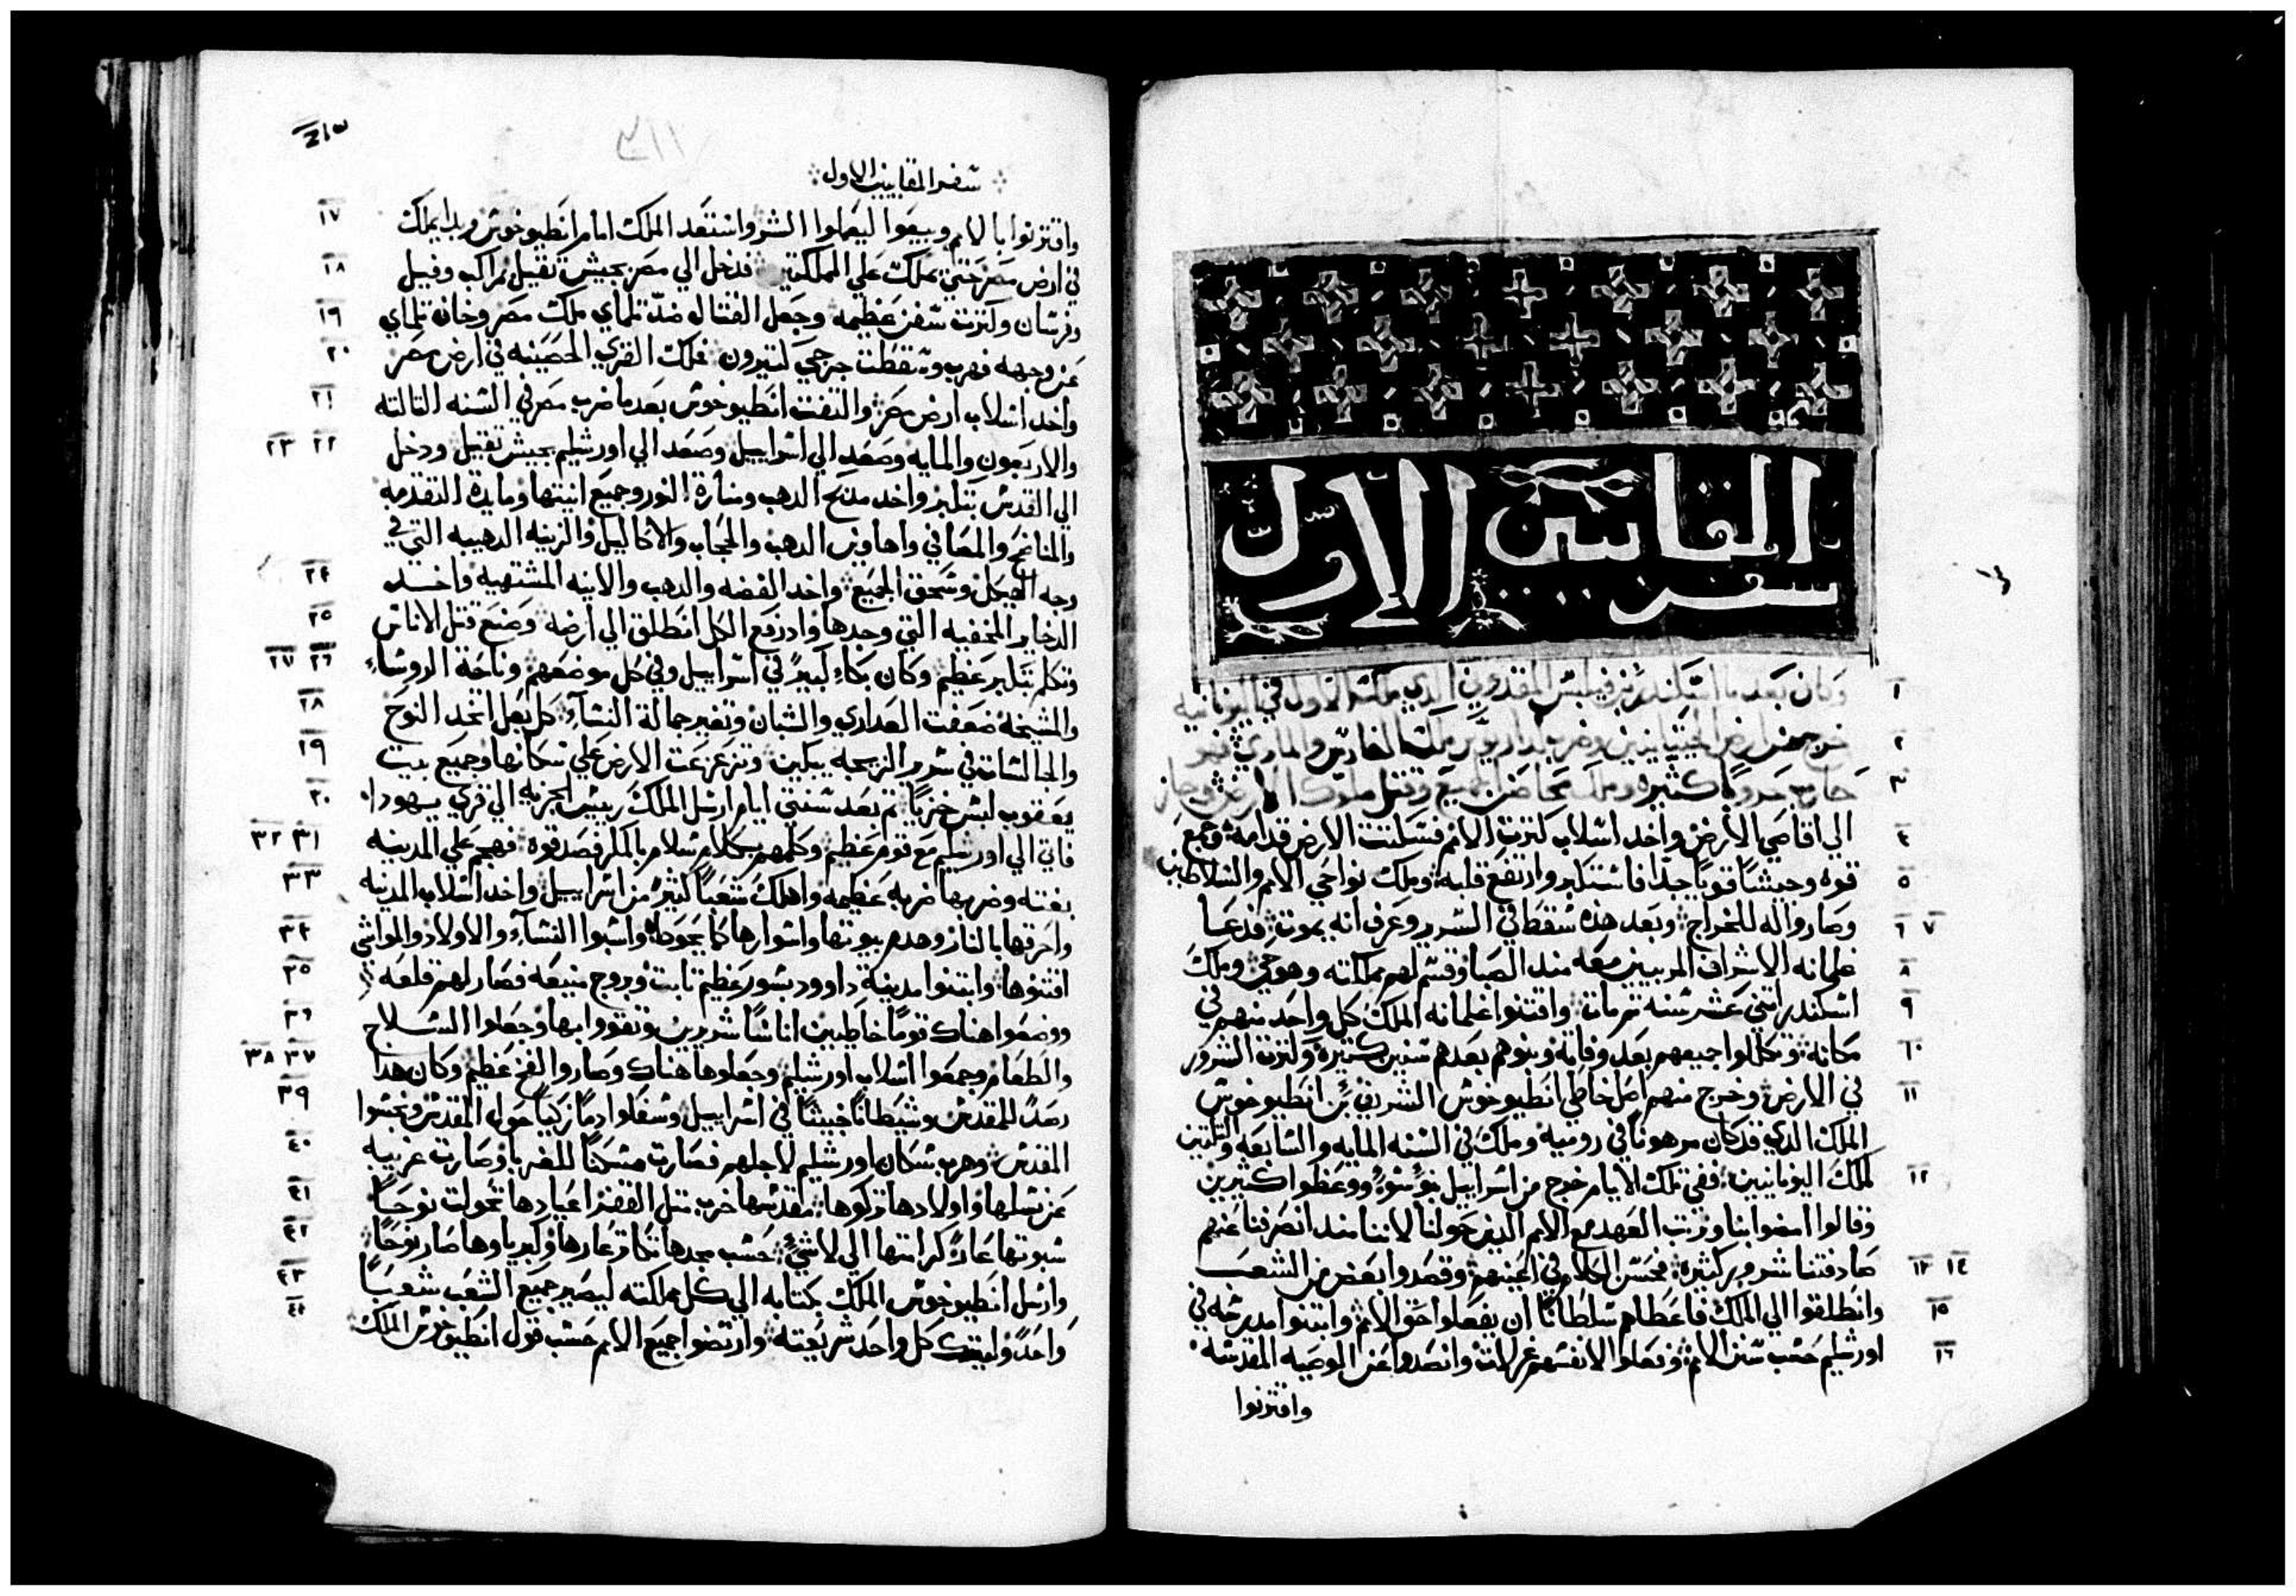 سفر
المقابيين الاول
وكان بعد ما اسكندر بن فيلبس المقدوني الذي ملك الاول في اليونانيه
خرج من ارض وضرب داريوس ملك الفارس والمادي
حروبًا كثيره وملك محاصن الجميع وقتل ملوك الارض وجاز
الي اقاصي الارض واخد اسلاب كثرت الامم فسكتت الارض قدامه وجمع
قوه وجيشًا قويًا جدًا فاستكبر وارتفع قلبه وملك نواحي الامم والسلاطين
وصاروا له للخراج وبعد هذه سقط في السرير وعرف انه يموت فدعا
غلمانه الاشراف المربيين معه مند الصبا وقسم لهم مملكته وهو حي وملك
اسكندر اتني عشر سنه ثم مات واقتنوا غلمانه الملك كل واحد منهم في
مكانه وتكللوا جميعهم بعد وفاته وبنوهم بعدهم سنين كتيره وكترت الشرور
في الارض وخرج منهم اصل خاطي انطيوخوش الشريف بن انطيوخوش
الملك الدي قد كان مرهونًا في روميه وملك في السنه المايه والسابعه والتلتين
لملك اليونانيين ففي تلك الايام خرج من اسراييل بنو سوء ووعظوا كثيرين
وقالوا امضوا بنا ورتب العهد مع الامم الدين حولنا لاننا مند انصرفنا عنهم
صادفتنا شرور كثيره فحسن الكلام في اعينهم وقصدوا بعض من الشعب
وانطلقوا الي الملك فاعطاهم سلطانًا ان يفعلوا حق الامم وابتنوا مدرسه في
اورشليم حسب سنن الامم وفعلوا لانفسهم غرلات وانصدوا عن الوصيه المقدسه
واقترنوا
٣١١
سفر المقابيين الاول
واقترنوا بالامم وبيعوا ليعملوا الشر واستعد الملك امام انطيوخوش وبدا يملك
في ارض مصر حتي يملك علي المملكتين فدخل الي مصر بجيش تقيل بمراكب وفيل
وفرسان وكترت سفن عظيمه وجعل القتال ضد تلماي ملك مصر وخاف تلماي
عن وجهه فهرب وسقطت جرحي كتيرون فملك القري الحصينه في ارض مصر
واخد اسلاب ارض مصر والتفت انطيوخوش بعد ما ضرب مصر في السنه التالته
والاربعون والمايه وصعد الي اسراييل وصعد الي اورشليم بجيش تقيل ودخل
الي القدس بتكبر واخد مدبح الدهب ومنارة النور وجميع انيتها ومايدة التقدمه
والمناضح والمعاني واهاوين الدهب والحجاب والاكاليل والزينه الدهبيه التي في
وجه الهيكل وسحق الجميع واخد الفضه والدهب والانيه المشتهيه واخد
الدخاير المخفيه التي وجدها واد رفع الكل انطلق الي ارضه وصنع قتل الاناس
وتكلم بتكبر عظيم وكان بكاء كبير في اسراييل وفي كل موضعهم وناحة الروساء
والمشيخه ضعفت العداري والشبان وتغير جمالة النساء كل بعل اتخد النوح
والجالسات في سرير الزيجه يبكين وتزعزعت الارض علي سكانها وجميع بيت
يعقوب لبس خزيًا تم بعد سنتي ايام ارسل الملك رييس الجزيه الي قري يهودا
فاتي الي اورشليم مع قوم عظيم وكلمهم بكلام سلام بالمكر فصدقوه فهجم علي المدينه
بغته وضربها ضربة عظيمه واهلك شعبًا كثير من اسراييل واخد اسلاب المدينه
واحرقها بالنار وهدم بيوتها واسوارها كما يحوط واسبوا النساء والاولاد والمواشي
اقتنوها وابتنوا مدينة داوود بسور عظيم تابت وبروج منيعه فصار لهم قلعه
ووضعوا هناك قومًا خاطيين اناسًا شريرين وتقووا بها وجعلوا السلاح
والطعام وجمعوا اسلاب اورشليم وجعلوها هناك وصاروا الفخ عظيم وكان هدا
رصدًا للمقدس وشيطانًا خبيثًا في اسراييل وسفكوا دمًا زكيًا حول المقدس ونجسوا
المقدس وهرب سكان اورشليم لاجلهم فصارت مسكنًا للغربا وصارت غريبه
عن نسلها واولادها تركوها مقدسها خرب متل القفر اعيادها تحولت نوحًا
سبوتها عارً كرامتها الي لا شيء حسب مجدها تكاتر عارها وكبرياوها صار نوحًا
وارسل انطيوخوش الملك بكتابه الي كل مملكته ليصير جميع الشعب شعبًا
واحدًا وليترك كل واحد شريعته وارتضوا جميع الامم حسب قول انطيوخوش الملك